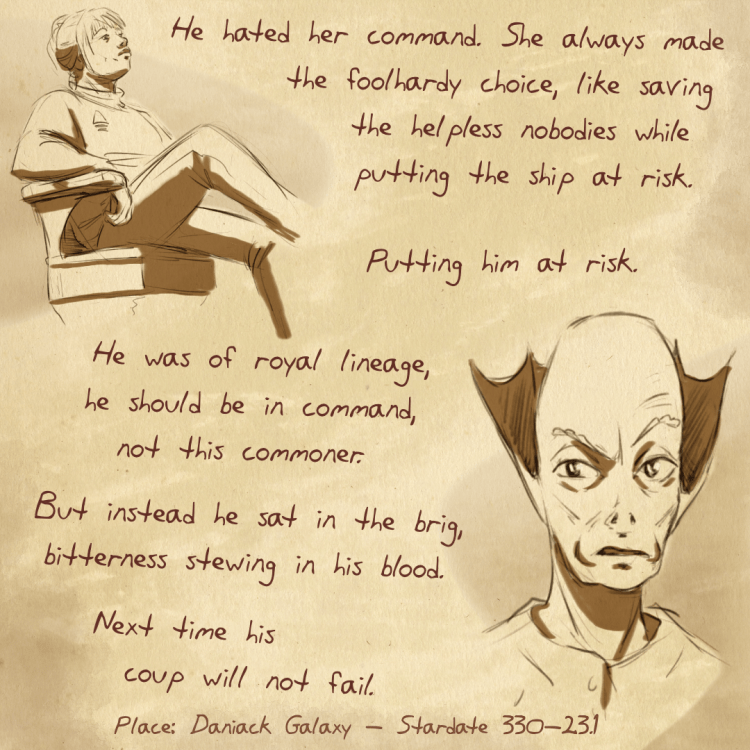 He hated her command. She always made
the foolhardy choice, like saving
the helpless nobodies while
putting the ship at risk.
Putting him at risk.
He was of royal lineage,
he should be in command,
not this commoner.
But instead he sat in the brig,
bitterness stewing in his blood.
Next time his
coup will not fail.
Place: Daniack Galaxy — Stardate 330—23.1